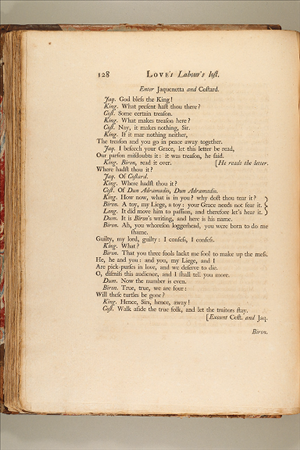 128 LOVE's Labour's lost.
Enter Jaquenetta and Costard.
Jaq. God bless the King!
King. What present hast thou there?
Cost. Some certain treason.
King. What makes treason here?
Cost. Nay, it makes nothing, Sir.
King. If it mar nothing neither,
The treason and you go in peace away together.
Jaq. I beseech your Grace, let this letter be read,
Our parson misdoubts it: it was treason, he said.
King. Biron, read it over. [He reads the letter.
Where hadst thou it?
Jaq. Of Costard.
King. Where hadst thou it?
Cost. Of Dun Adramadio, Dun Adramadio.
King. How now, what is in you? why dost thou tear it?
Biron. A toy, my Liege, a toy: your Grace needs not fear it.
Long. It did move him to passion, and therefore let's hear it.
Dum. It is Biron's writing, and here is his name.
Biron. Ah, you whoreson loggerhead, you were born to do me
shame.
Guilty, my lord, guilty: I confess, I confess.
King. What?
Biron. That you three fools lackt me fool to make up the mess.
He, he and you: and you, my Liege, and I
Are pick-purses in love, and we deserve to die.
O, dismiss this audience, and I shall tell you more.
Dum. Now the number is even.
Biron. True, true, we are four:
Will these turtles be gone?
King. Hence, Sirs, away!
Cost. Walk aside the true folk, and let the traitors stay.
[Exeunt Cost. and Jaq.
Biron.